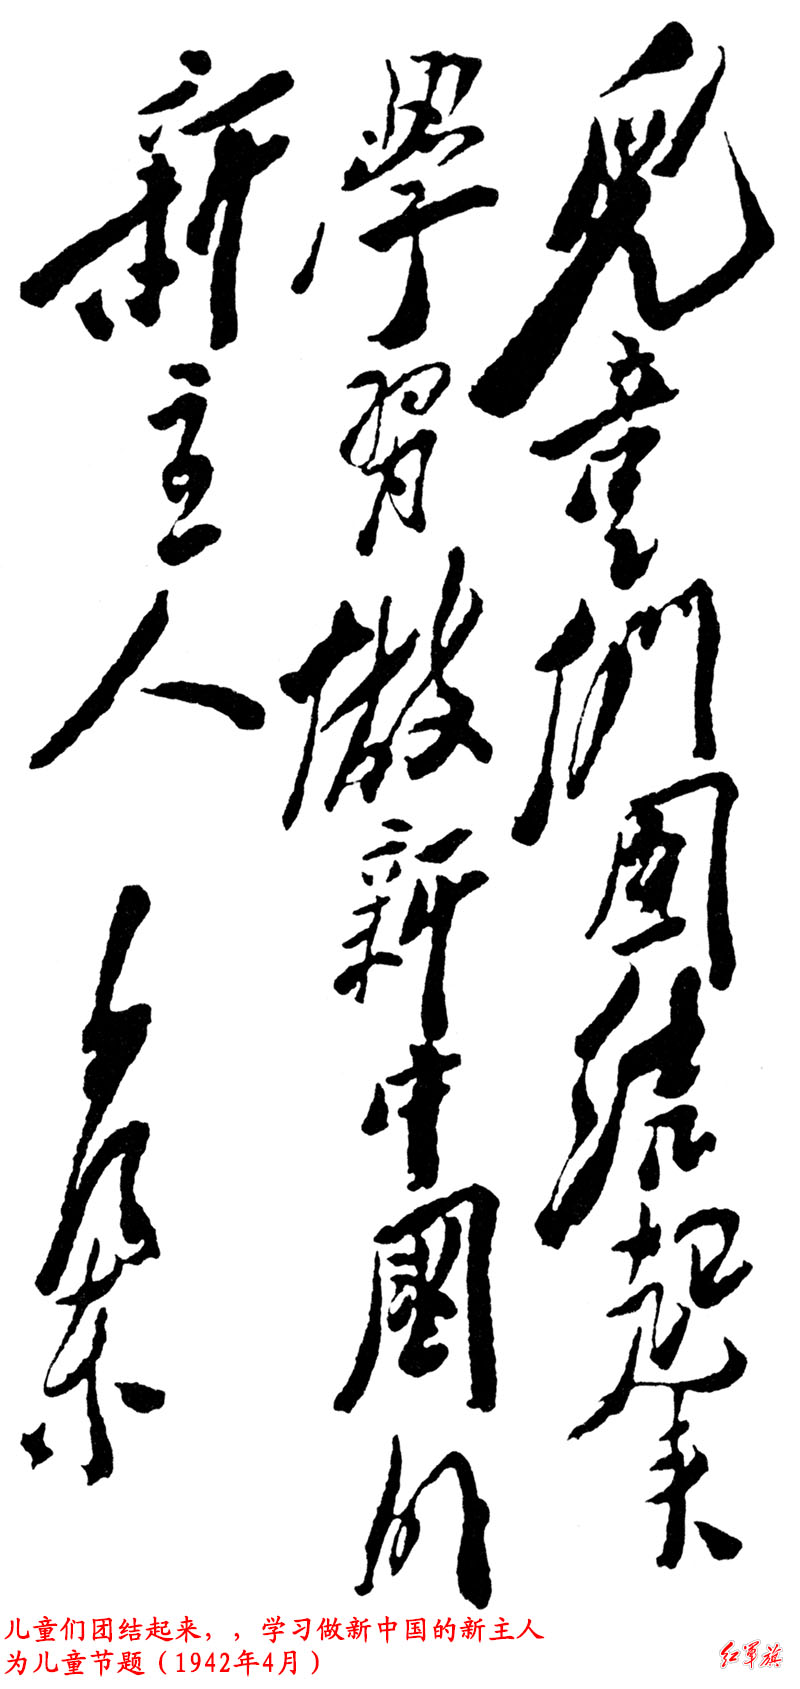 兒童們團結起来
學習做新中國的
新主人
毛泽东
儿童们团结起来，，学习做新中国的新主人
为儿童节题（1942年4月）
红军旗